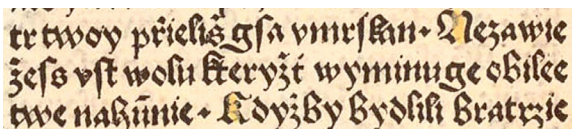 tr twoy přieliš gsa vmrskan · Nezawie
žess vst wolu kteryžť wyminuge obilee
twe nahūnie · Kdyžby bydlili bratrzie